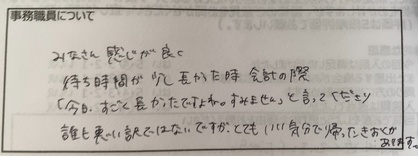 事務職員について
みなさん 感じが良く
待ち時間が少し長かった時 会計の際
「今日、すごく長かったですよね。すみません」と言ってくださり
誰も悪い訳ではないですが、とても いい気分で帰ったきおくが
あります。